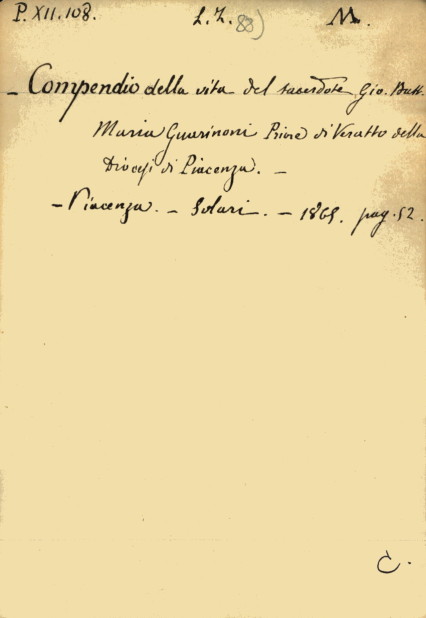 P. XII. 108. L. Z. 88) M.
- Compendio della vita del sacerdote Gio. Batt.
Maria Guarinoni Priore di Veratto della
Diocesi di Piacenza. -
- Piacenza. - Solari. - 1865. pag. 52.
C.